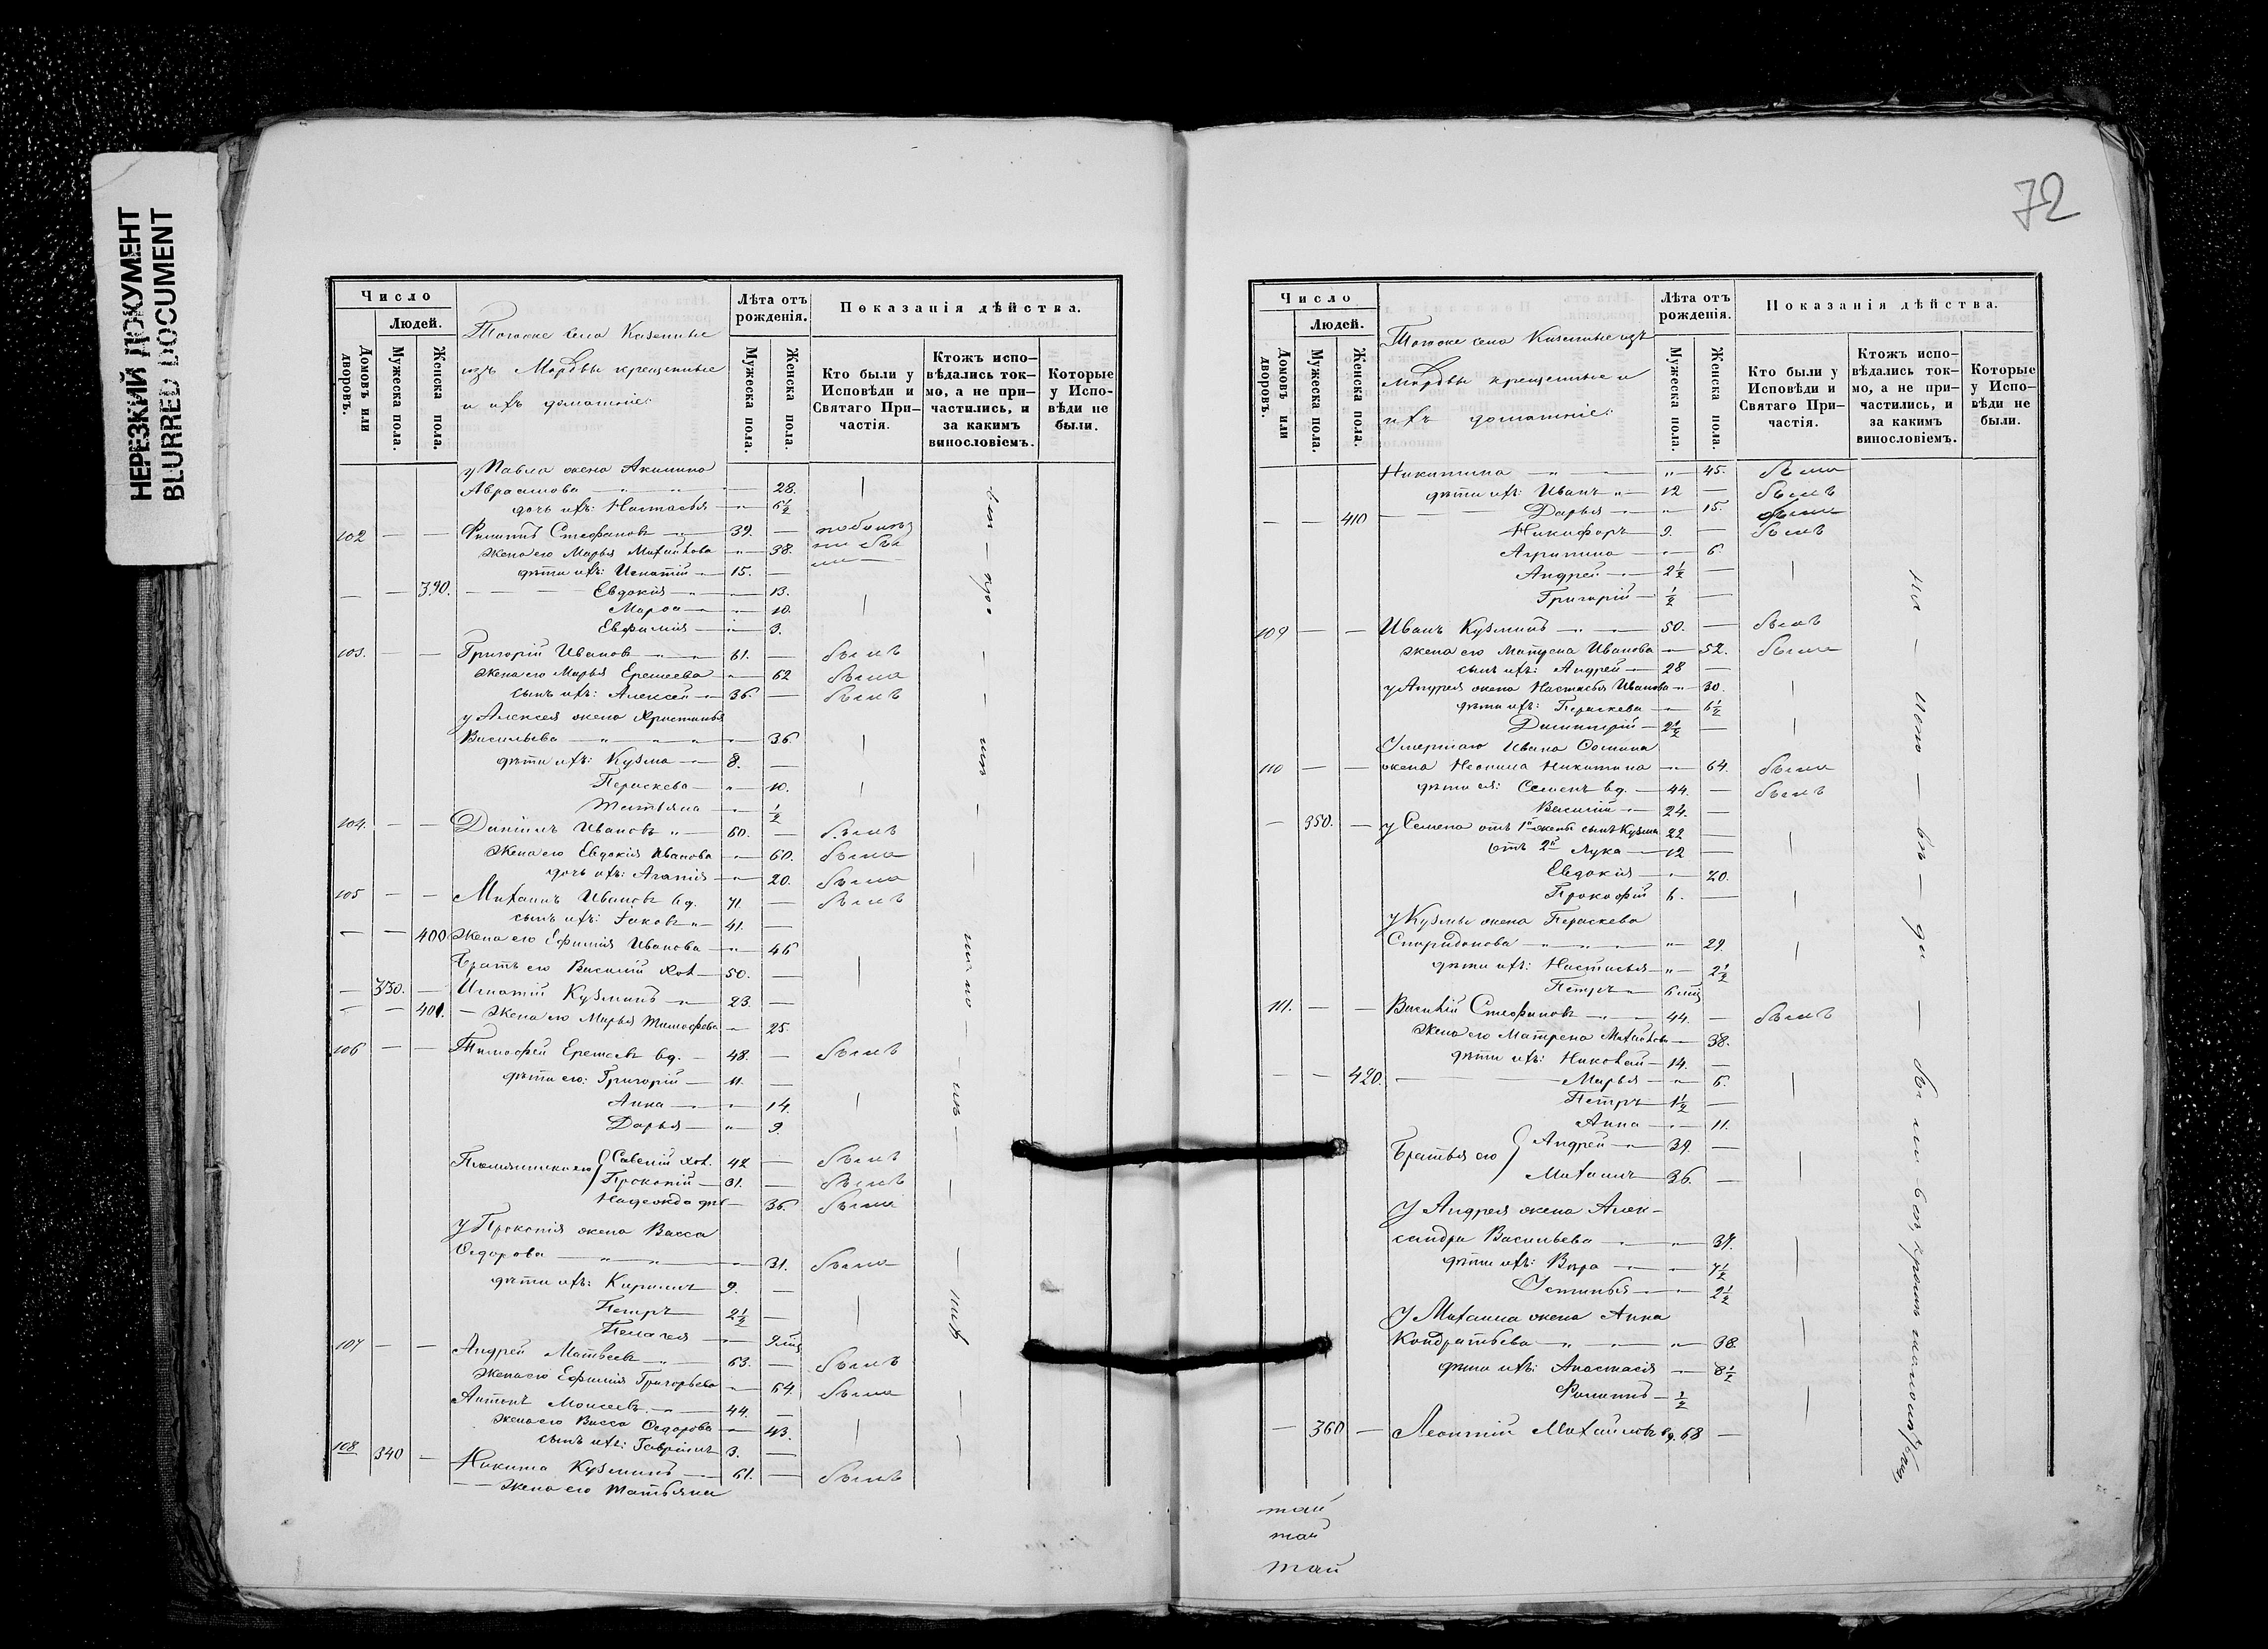 НЕРЕЗКИЙ ДОКУМЕНТ
BLURRED DOCUMENT
Число
Людей.
Домовъ или дворовъ.
Мужеска пола.
Женска пола.
Тогоже села Казенные
изъ Мордвы крещенные
и ихъ домашніе:
Лѣта отъ рожденія.
Мужеска пола.
Женска пола.
Показанія дѣйства.
Кто были у Исповѣди и Святаго Причастія.
Ктожъ исповѣдались токмо, а не причастились, и за какимъ винословіемъ.
Которые у Исповѣди не были.
у Павла жена Акилина
Авраамова 28.
дочь ихъ: Настасья 6½
102 Филиппъ Стефановъ 39.
Жена его Марья Михайлова 38.
дѣти ихъ: Игнатій 15.
390. Евдокія 13.
Марѳа 10.
Евфимія 3.
103. Григорій Ивановъ 61. былъ
Жена его Марья Еремеева 62 была
сынъ ихъ: Алексей 36 былъ
у Алексея жена Христинья
Васильева 36.
дѣти ихъ: Кузма 8.
Пераскева 10.
Татьяна ½
104. Даніилъ Ивановъ 60. былъ
Жена его Евдокія Иванова 60. была
дочь ихъ: Агапія 20. была
105 Михаилъ Ивановъ вд. 71. былъ
сынъ ихъ: Іаковъ 41.
400 Жена его Ефимія Иванова 46
Братъ его Василій хол. 50.
330. Игнатій Кузминъ 23.
401. Жена его Марья Тимофеева 25.
106 Тимофей Еремеевъ вд. 48. былъ
дѣти его: Григорій 11.
Анна 14.
Дарья 9.
Племянники его Савелій хол. 42 былъ
Прокопій 31. былъ
Надежда дѣв 36. была
у Прокопія жена Васса
Ѳедорова 31. была
дѣти ихъ: Кириллъ 9.
Петръ 2½
Пелагея 9 мц
107 Андрей Матвеевъ 63. былъ
Жена его Ефимія Григорьева 64. была
Антонъ Моисеевъ 44.
Жена его Васса Ѳедорова 43.
сынъ ихъ: Гавріилъ 3.
108. 340 Никита Кузминъ 61. былъ
Жена его Татьяна
72
Число
Людей.
Домовъ или дворовъ.
Мужеска пола.
Женска пола.
Тогоже села Казенные изъ
Мордвы крещенные и
ихъ домашніе:
Лѣта отъ рожденія.
Мужеска пола.
Женска пола.
Показанія дѣйства.
Кто были у Исповѣди и Святаго Причастія.
Ктожъ исповѣдались токмо, а не причастились, и за какимъ винословіемъ.
Которые у Исповѣди не были.
Никитина 45. была
дѣти ихъ: Иванъ 12 былъ
410 Дарья 15. была
Никифоръ 9. былъ
Агрипина 6.
Андрей 2½
Григорій ½
109 Иванъ Кузминъ 50. былъ
жена его Матрена Иванова 52. была
сынъ ихъ: Андрей 28
у Андрея жена Настасья Иванова 30.
дѣти ихъ: Пераскева 6½
Димитрій 2½
Умершаго Ивана Ѳомина
110 жена Неонила Никитина 64. была
дѣти ея: Семенъ вд. 44. былъ
Василій 24.
350. у Семена отъ 1й жены сынъ Кузма 22
отъ 2й Лука 12
Евдокія 20.
Прокофій 6.
у Кузмы жена Пераскева
Спиридонова 29.
дѣти ихъ: Настасья 2½
Петръ 6 мц
111. Василій Стефановъ 44. былъ
Жена его Матрена Михайлова 38.
дѣти ихъ: Николай 14.
420. Марья 6.
Петръ 1½
Анна 11.
Братья его Андрей 39.
Михаилъ 36.
У Андрея жена Алек-
сандра Васильева 37.
дѣти ихъ: Вѣра 7½
Устинья 2½
У Михаила жена Анна
Кондратьева 38.
дѣти ихъ: Анастасія 8½
Филиппъ ½
360 Леонтій Михайловъ вд. 68